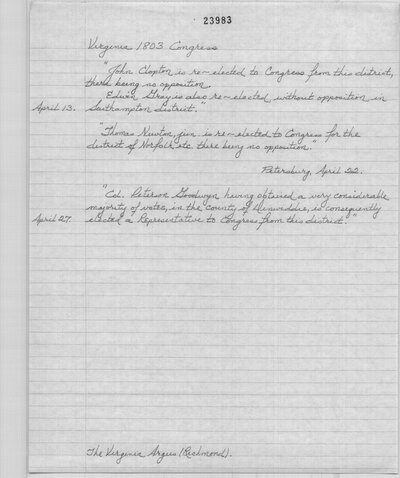 23983
Virginia 1803 Congress
"John Clopton is re-elected to Congress from this district,
there being no opposition.
Edwin Gray is also re-elected without opposition in
April 13. Southampton District."
"Thomas Newton, jun. is re-elected to Congress for the
district of Norfolk etc. there being no opposition."
Petersburg, April 22.
"Col. Peterson Goodwyn having obtained a very considerable
majority of votes, in the County of Dinwiddie, is consequently
April 27. elected a Representative to Congress from this district."
The Virginia Argus (Richmond).